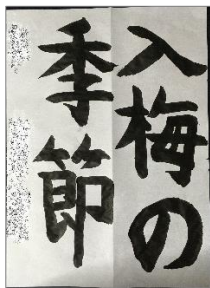 入梅の
季節